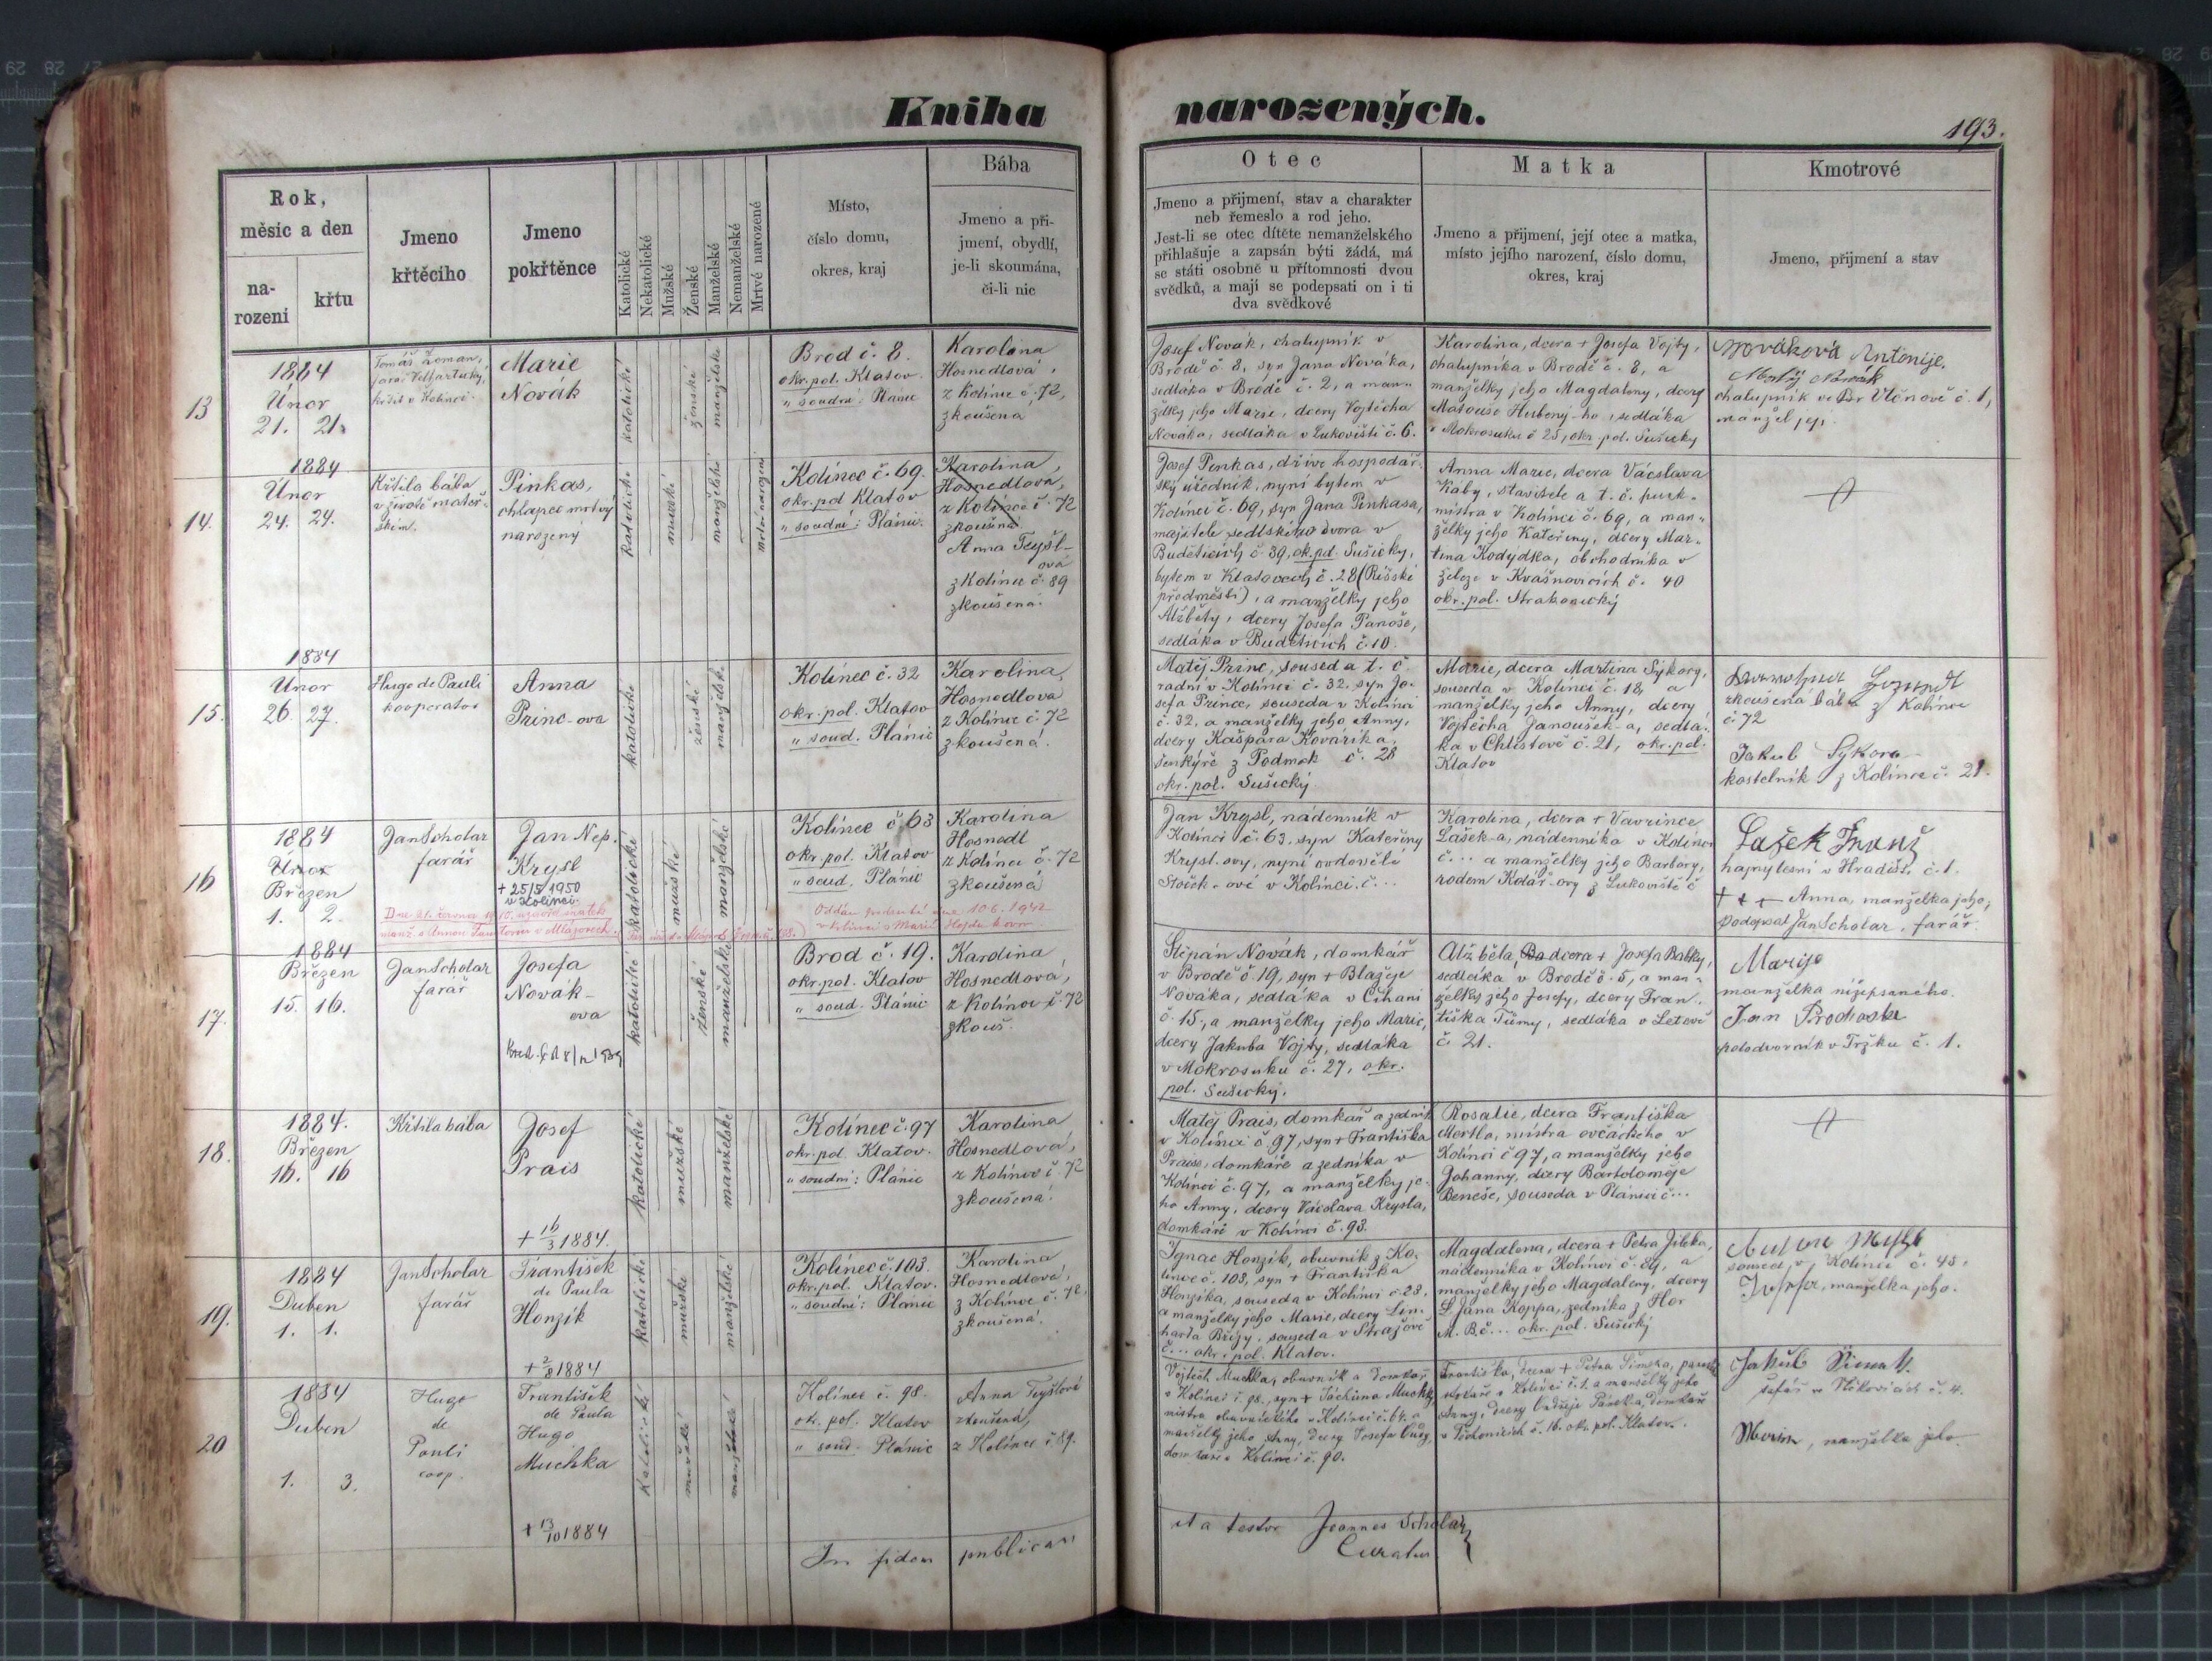 Kniha narozených.
193.
Rok,
měsíc a den
na-
rozeni
křtu
Jmeno
křtěcího
Jmeno
pokřtěnce
Katolické
Nekatolické
Mužské
Ženské
Manželské
Nemanželské
Mrtvé narozené
Místo,
číslo domu,
okres, kraj
Bába
Jmeno a při-
jmení, obydlí,
je-li skoumána,
či-li nic
Otec
Jmeno a přijmení, stav a charakter
neb řemeslo a rod jeho.
Jest-li se otec dítěte nemanželského
přihlašuje a zapsán býti žádá, má
se státi osobně u přítomnosti dvou
svědků, a mají se podepsati on i ti
dva svědkové
Matka
Jmeno a přijmení, její otec a matka,
místo jejího narození, číslo domu,
okres, kraj
Kmotrové
Jmeno, přijmení a stav
13
1884
Únor
21. 21.
Tomáš Zeman,
farář
křtil v Kolinci.
Marie
Novák
katolické
ženské
manželské
Brod č. 8.
okr. pol. Klatov.
" soudní: Plánic
Karolina
Hosnedlová,
z Kolince č. 72,
zkoušena
Josef Novák, chalupník v
Brodě č 8, syn Jana Nováka,
sedláka v Brodě č. 2, a man-
želky jeho Marie, dcery Vojtěcha
Nováka, sedláka v Lukovišti č. 6.
Karolina, dcera + Josefa Vojty,
chalupníka v Brodě č. 8, a
manželky jeho Magdaleny, dcery
Matouše Hubený-ho, sedláka
v Mokrosuku č 25, okr. pol. Sušický
Nováková Antonije.
Matěj Novák
chalupník ve Vlčnově č. 1,
manžel její.
14.
1884
Únor
24. 24.
Křtila bába
v životě mateř-
ském.
Pinkas,
chlapec mrtvý
narozený
katolické
mužské
manželské
Mrtvě narozený
Kolinec č. 69.
okr. pol Klatov
" soudní: Plánic.
Karolina,
Hosnedlová,
z Kolince č. 72
zkoušená
Anna Teyšl-
ová
z Kolince č. 89
zkoušená.
Josef Pinkas, dříve hospodář-
ský úředník, nyní bytem v
Kolinci č. 69, syn Jana Pinkasa,
majitele sedlského dvora v
Budeticích č 39, ok. pol. Sušický,
bytem v Klatovech č. 28 (Říšské
předměstí), a manželky jeho
Alžběty, dcery Josefa Panoše,
sedláka v Budeticích č. 10.
Anna Marie, dcera Václava
Kaby, stavitele a t. č. purk-
mistra v Kolinci č. 69, a man-
želky jeho Kateřiny, dcery Mar-
tina Kodydka, obchodníka v
železe v Kvášňovicích č. 40
okr. pol. Strakonický
15.
1884
Únor
26. 27.
Hugo de Pauli
kooperator
Anna
Princ-ova
katolické
ženské
manželské
Kolinec č. 32
okr. pol. Klatov
" soud. Plánic
Karolina,
Hosnedlova
z Kolince č. 72
zkoušená.
Matěj Princ, soused a t. č.
radní v Kolinci č. 32, syn Jo-
sefa Prince, souseda v Kolinci
č. 32, a manželky jeho Anny,
dcery Kašpara Kovaříka,
šenkýře z Podmok č. 28
okr. pol. Sušický
Marie, dcera Martina Sýkory,
souseda v Kolinci č. 18, a
manželky jeho Anny, dcery
Vojtěcha Janoušek-a, sedlá-
ka v Chlistově č. 21, okr. pol.
Klatov
zkoušená bába z Kolince
č 72
Jakub Sykora
kostelník z Kolince č. 21.
16
1884
Únor
Březen
1. 2.
Jan Scholar
farář
Jan Nep.
Krysl
+ 25/5 1950
v Kolinci.
katolické
mužské
manželské
Kolinec č 63
okr. pol. Klatov
" soud. Plánic
Karolina
Hosnedl
z Kolince č. 72
zkoušená
Oddán podruhé dne 10.6.1942
v Kolinci s Marií
Jan Krysl, nádenník v
Kolinci č. 63, syn Kateřiny
Krysl-ovy, nyní ovdovělé
v Kolinci č...
Karolina, dcera + Vavřince
Lašek-a, nádenníka v Kolinci
č... a manželky jeho Barbory,
rodem Kolář-ovy z Lukoviště č
Lašek Franz
hajný lesní v Hradišti č. 1.
+ + + Anna, manželka jeho,
podepsal Jan Scholar, farář.
17.
1884
Březen
15. 16.
Jan Scholar
farář
Josefa
Novák-
ova
katolické
ženské
manželské
Brod č. 19.
okr. pol. Klatov
" soud. Plánic
Karolina
Hosnedlová,
z Kolince č. 72
zkouš.
Štěpán Novák, domkář
v Brodě č 19, syn + Blažeje
Nováka, sedláka v Číhani
č. 15, a manželky jeho Marie,
dcery Jakuba Vojty, sedláka
v Mokrosuku č. 27, okr.
pol. Sušický.
Alžběta, dcera + Josefa Babky,
sedláka v Brodě č. 5, a man-
želky jeho Josefy, dcery Fran-
tiška Tůmy, sedláka v Letově
č. 21.
Marije
manželka nížepsaného.
Jan Prochaska
polodvorník v Tržku č. 1.
18.
1884.
Březen
16. 16
Křtila bába
Josef
Prais
+ 16/3 1884.
katolické
mužské
manželské
Kolinec č 97
okr. pol. Klatov.
" soudní: Plánic
Karolina
Hosnedlová,
z Kolince č. 72
zkoušená.
Matěj Prais, domkář a zedník
v Kolinci č 97, syn + Františka
Praise, domkáře a zedníka v
Kolinci č. 97, a manželky je-
ho Anny, dcery Václava Krysla,
domkáře v Kolinci č. 93.
Rosalie, dcera Františka
Mertla, mistra ovčáckého v
Kolinci č 97, a manželky jeho
Johanny, dcery Bartoloměje
Beneše, souseda v Plánici č...
19.
1884
Duben
1. 1.
Jan Scholar
farář
František
de Paula
Honzík
+ 2/8 1884
katolické
mužské
manželské
Kolinec č. 103.
okr. pol. Klatov.
" soudní: Plánic
Karolina
Hosnedlová,
z Kolince č. 72,
zkoušená.
Ignac Honzík, obuvník z Ko-
lince č. 103, syn + Františka
Honzíka, souseda v Kolinci č. 28,
a manželky jeho Marie, dcery Lin-
harta Břízy, souseda v Strážově
č... okr. pol. Klatov.
Magdalena, dcera + Petra Jílka,
nádenníka v Kolinci č. 84, a
manželky jeho Magdaleny, dcery
Jana Koppa, zedníka z Hor
M. B. č... okr. pol. Sušický
soused v Kolinci č. 45.
manželka jeho.
20
1884
Duben
1. 3.
Hugo
de
Pauli
coop.
František
de Paula
Hugo
Muchka
+ 13/10 1884
Katolické
mužské
manželské
Kolinec č. 98.
okr. pol. Klatov
" soud. Plánic
Anna Teyšlová
zkoušená,
z Kolince č 89.
Vojtěch Muchka, obuvník a domkař
v Kolinci č. 98, syn + Jáchima Muchky,
mistra obuvnického v Kolinci č. 64. a
manželky jeho Anny, dcery Josefa
domkaře v Kolinci č. 90.
Františka, dcera + Petra
v Kolinci č. 1. a manželky jeho
Anny, dcery Ondřeje Pánka, domkaře
č. 16. okr. pol. Klatov.
Jakub Šimek.
šafář v č. 4.
manželka jeho.
In fidem publicam
ita testor Joannes Scholar
Curatus